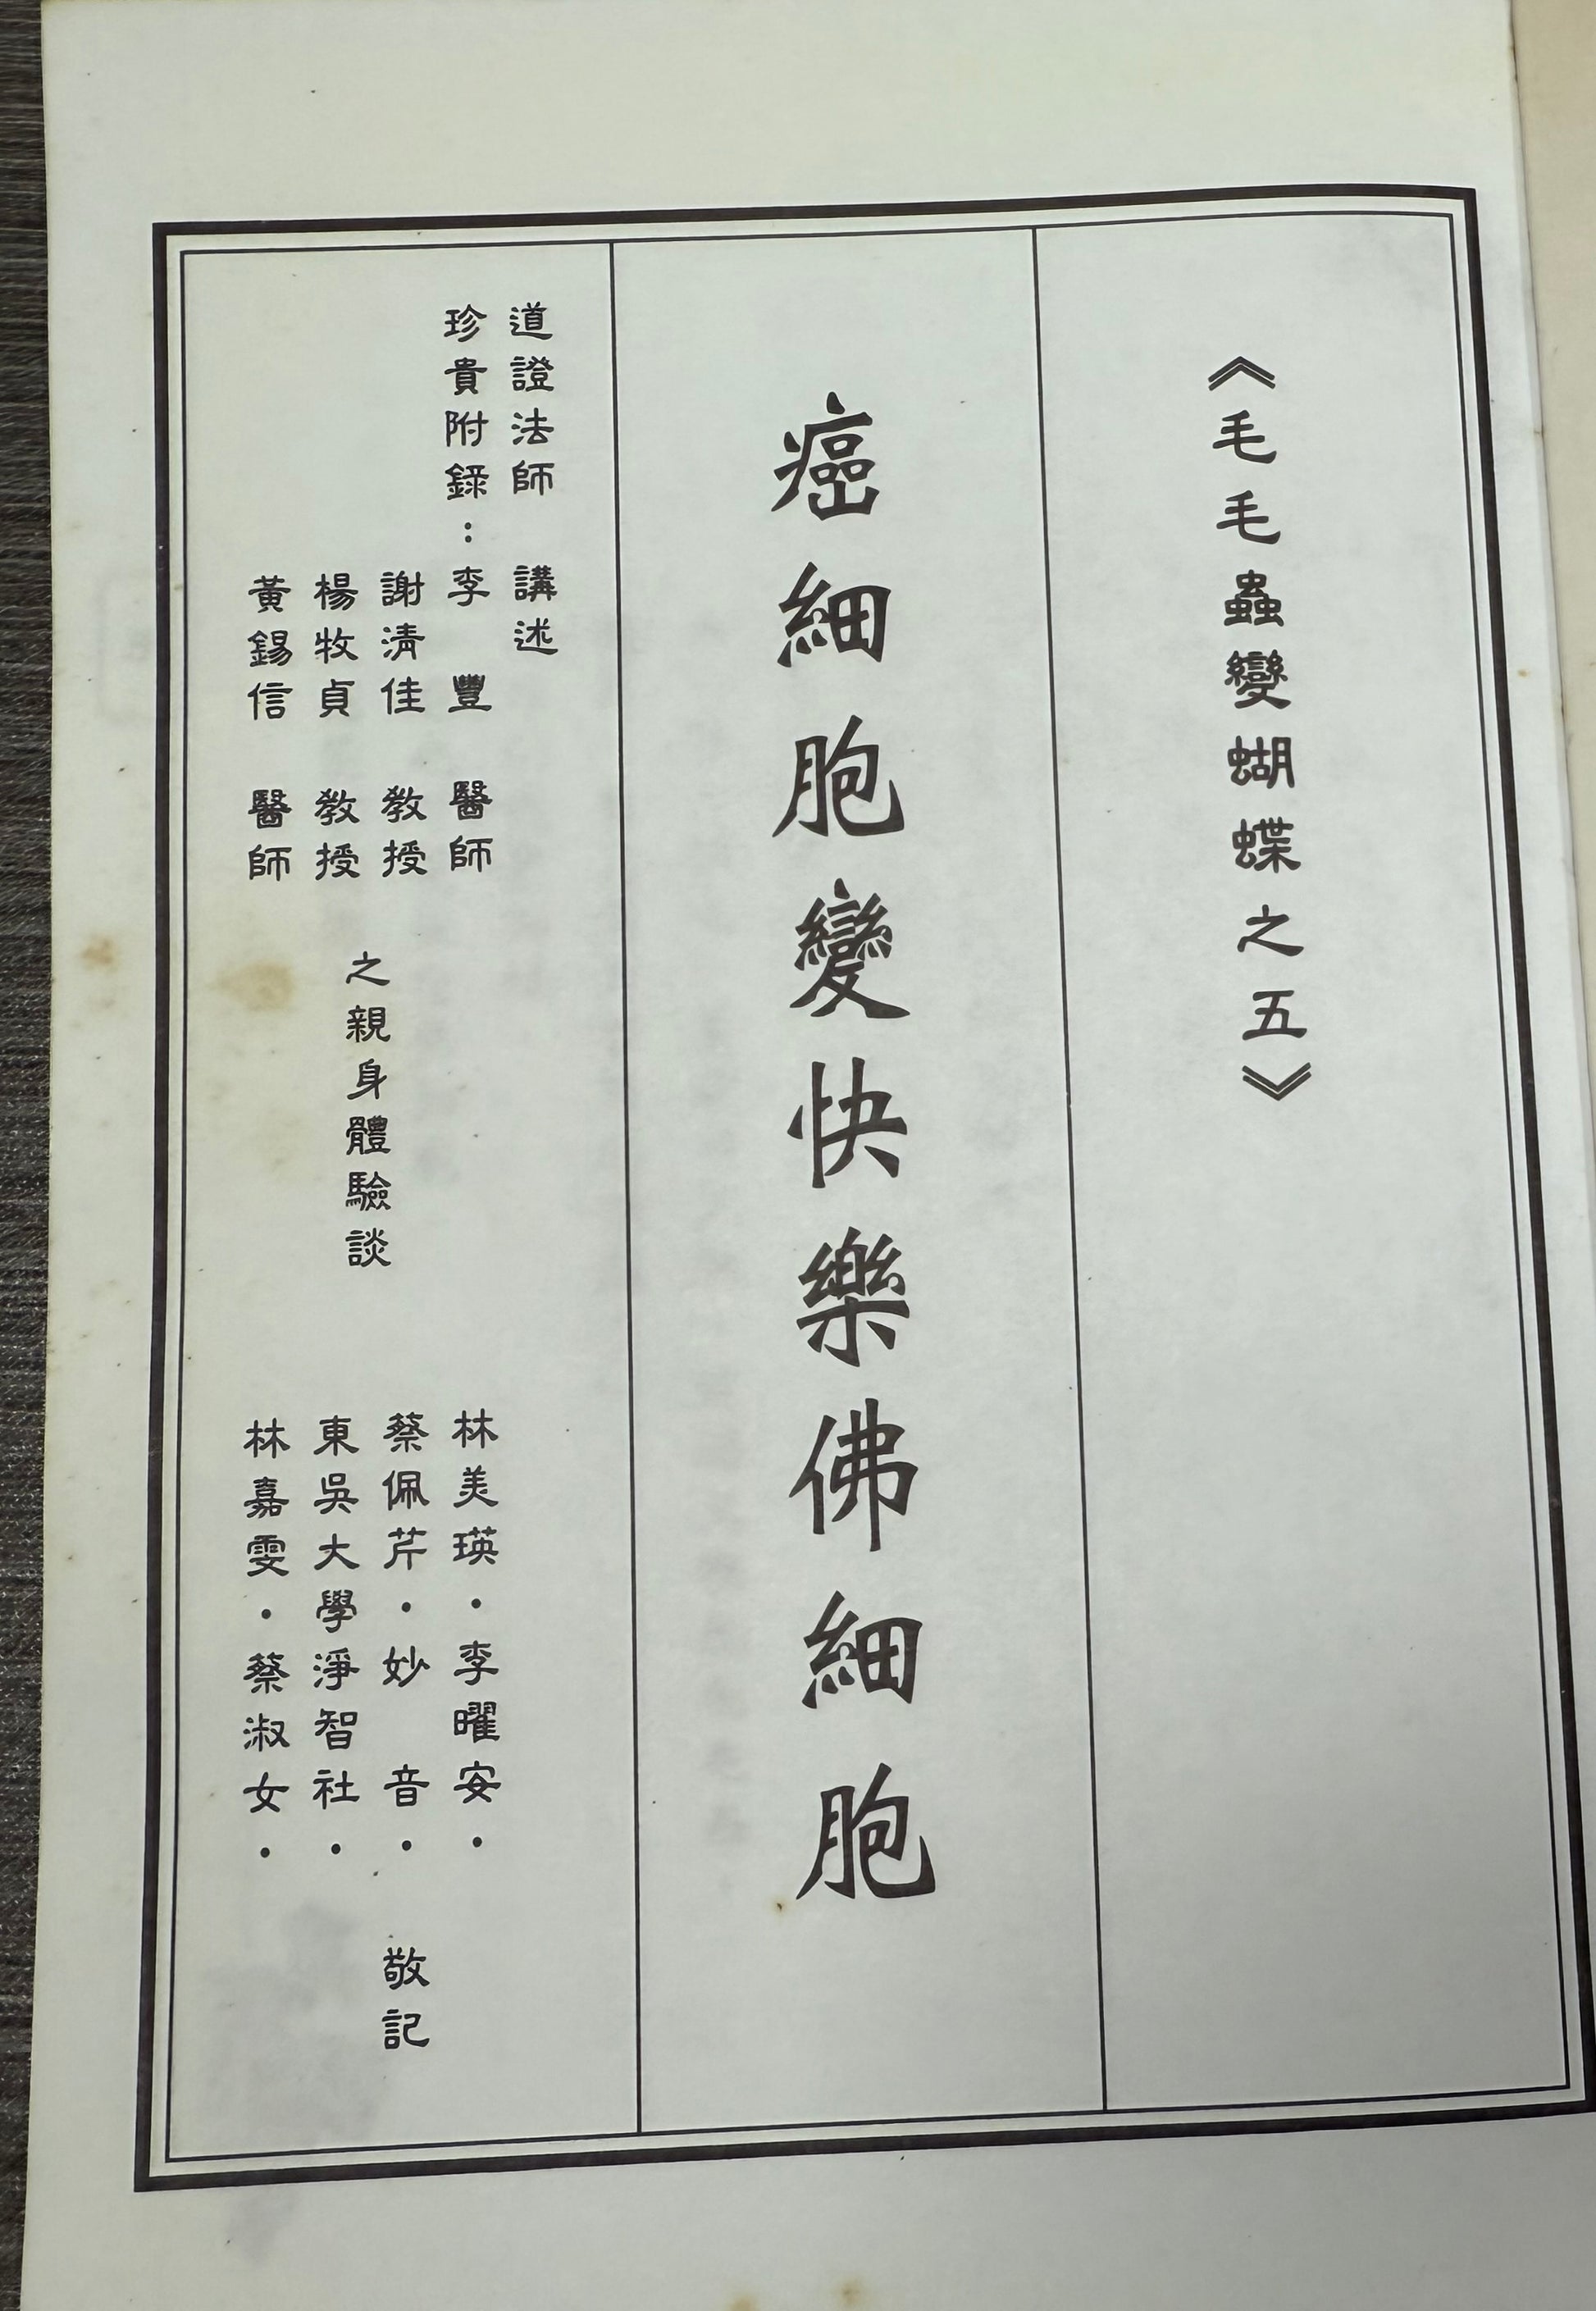 《毛毛蟲變蝴蝶之五》
癌細胞變快樂佛細胞
道證法師 講述
珍貴附錄：李 豐 醫師
謝清佳 教授
楊牧貞 教授
黃錫信 醫師
之親身體驗談
林美瑛・李曜安・
蔡佩芹・妙 音・
東吳大學淨智社・
林嘉雯・蔡淑女・
敬記